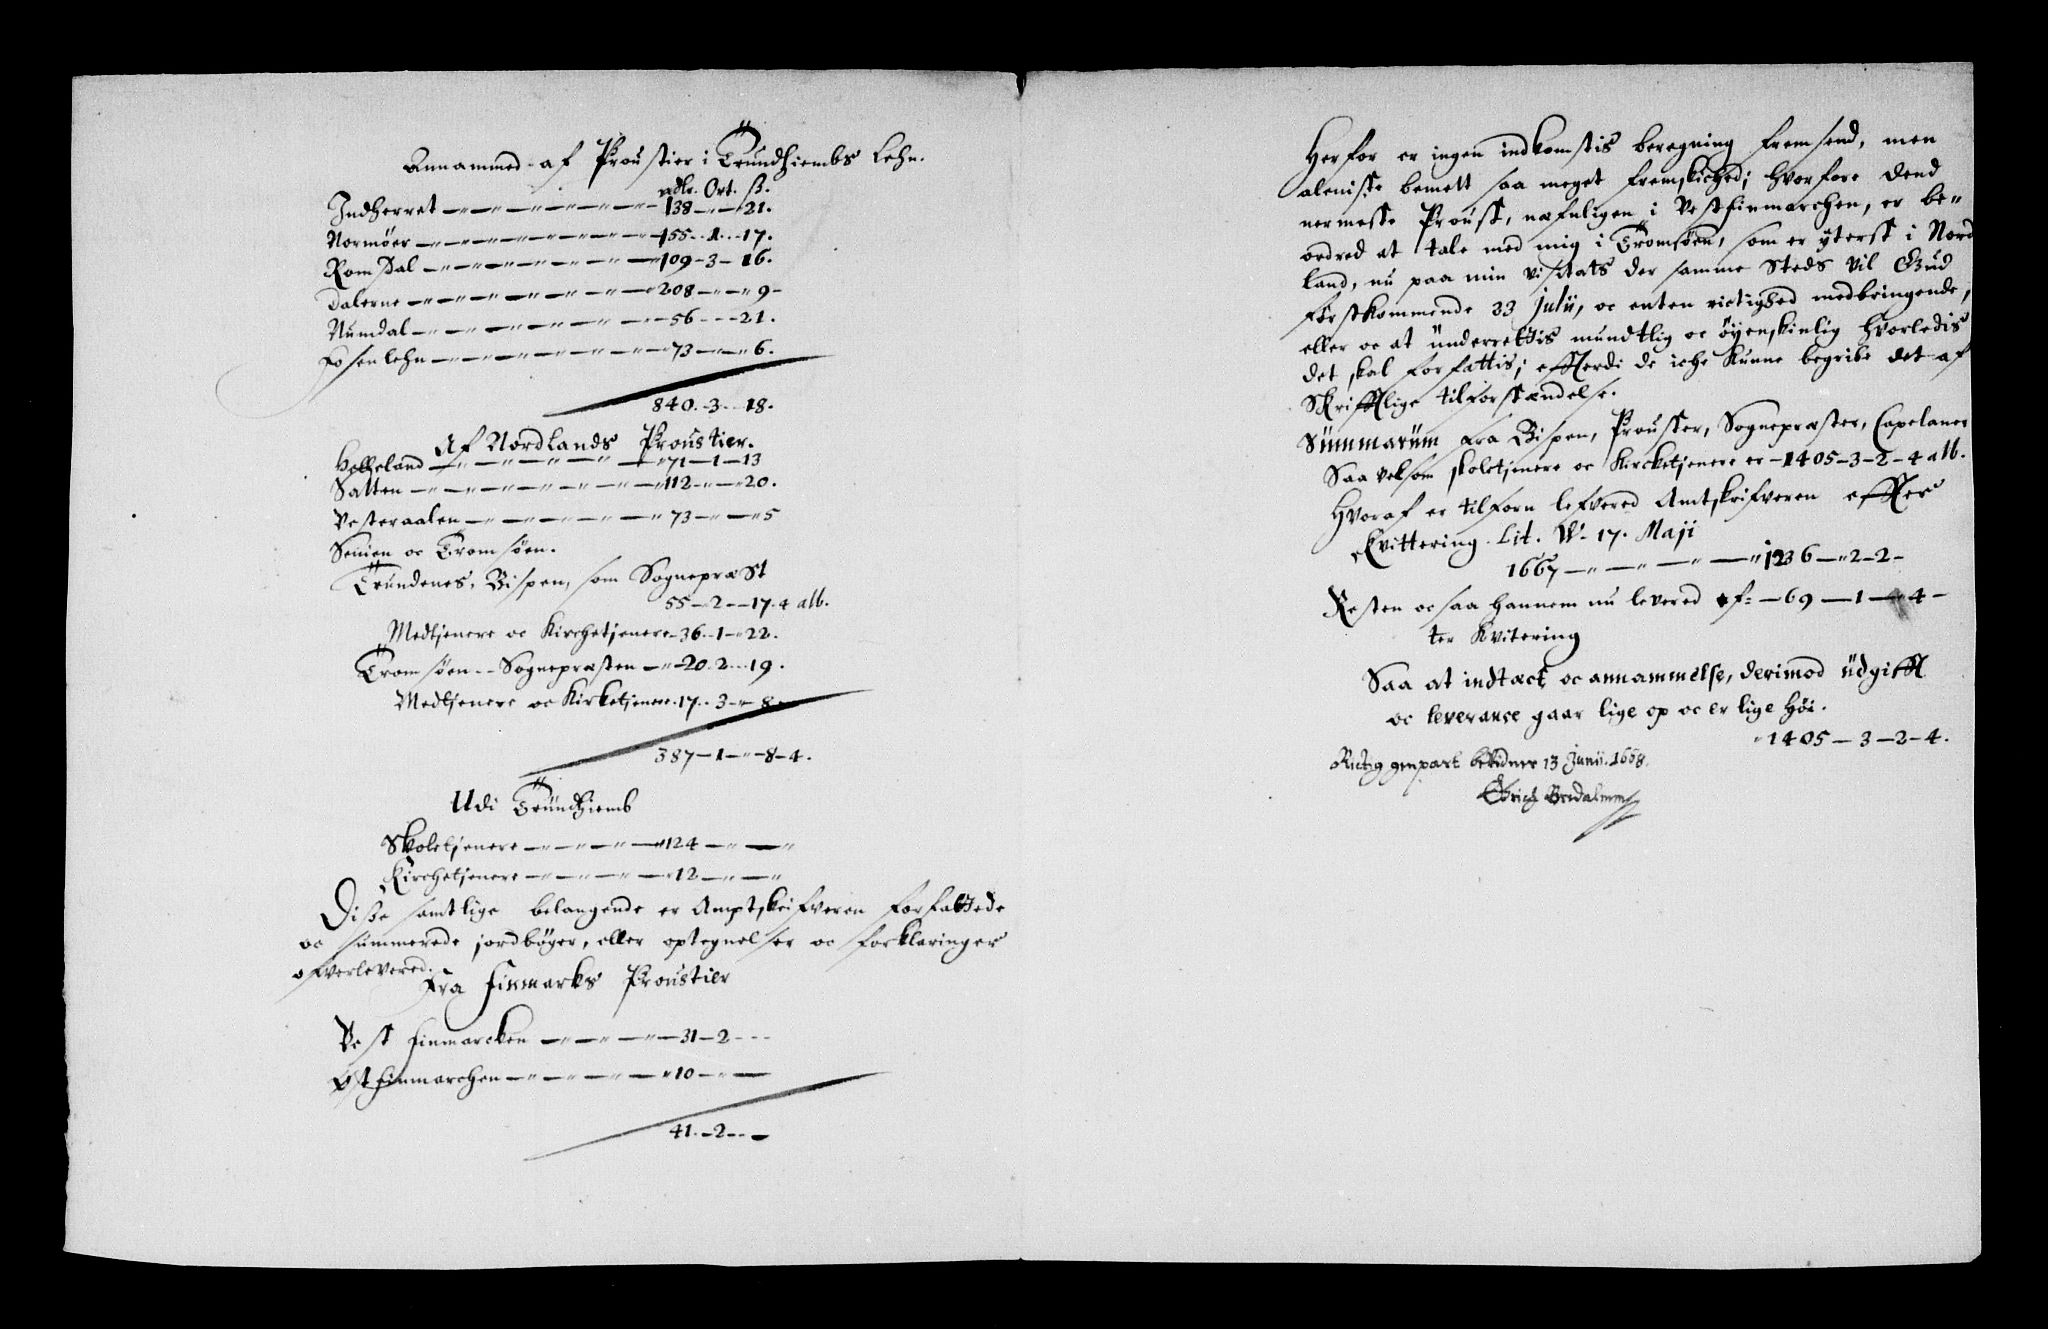 Annammed af Proustier i Trundhiembs Lehn.
rdlr. Ort. ß.
Indherret — " — " — 138 — " — 21.
Normöer — " — " — 155 - 1 - 17.
Romsdal — " — " — 109 - 3 - 16.
Dalerne — " — " — 208 — " — 9 -
Numdal — " — " — 56 - - - 21.
Fosenlehn — " — " — 73 — " — 6.
840. - 3. - 18.
Af Nordlands Proustier.
Helgeland — " — " — 71 - 1 - 13
Salten — " — " — 112 — " — 20.
Vesteraalen — " — " — 73 — " — 5
Senien oc Tromsöen.
Trundenes, Bispen, som Sognepræst
55 - 2 - 17. 4 alb.
Medtjenere oc Kirchetjenere - 36. - 1 - 22.
Tromsöen - - Sognepræsten — " - 20. 2. - 19.
Medtjenere oc Kirketjenere. 17. - 3 - " - 8 -
387 - 1 - " - 8 - 4.
Udi Trundhiemb
Skoletjenere — " — " — 124 — " — "
Kirchetjenere — " — " — 12 — " — "
Disse samtlige belangende er Amptskrifveren forfattede
oc summerede jordböger, eller optegnelser oc forklaringer
ofverlevered.
Fra Finmarks Proustier
Vest Finmarcken — " — " — 31 - 2 - - -
Öst Finmarchen — " — " — 10 — " —
41. - 2 - - -
Herfor er ingen indkomstis beregning fremsend, men
alenisте bemelt saa meget fremskiched; hvorfore dend
nermeste Proust, næfnligen i Vestfinmarchen, er be-
ordred at tale med mig i Tromsöen, som er yterst i Nord
land, nu paa min visitats der samme Steds vil Gud
förstkommende 23 Julii, oc enten rictighed medbringende,
eller oc at underrettis mundtlig oc öyenskinlig hvorledis
det skal forfattis; effterdi de iche kunne begribe det af
Skrifftlige tilforstændelse.
Summarum fra Bispen, Prouster, Sognepræster, Capelaner
Saa velsom skoletjenere oc Kircketjenere er - 1405 - 3 - 2 - 4 alb.
Hvoraf er tilforn lefvered Amtskrifveren effter
Kvittering. Lit. W. 17. Maji
1667 — " — " — 1236 — " 2 - 2 -
Resten oc saa hannem nu levered ef: — 69 — 1 — 4 -
ter Kvitering
Saa at indtæct oc annammelse, derimod üdgifft
oc leverance gaar lige op oc er lige höi.
" 1405 — 3 — 2 - 4.
Rictig genpart bekidner 13 Junii. 1668.